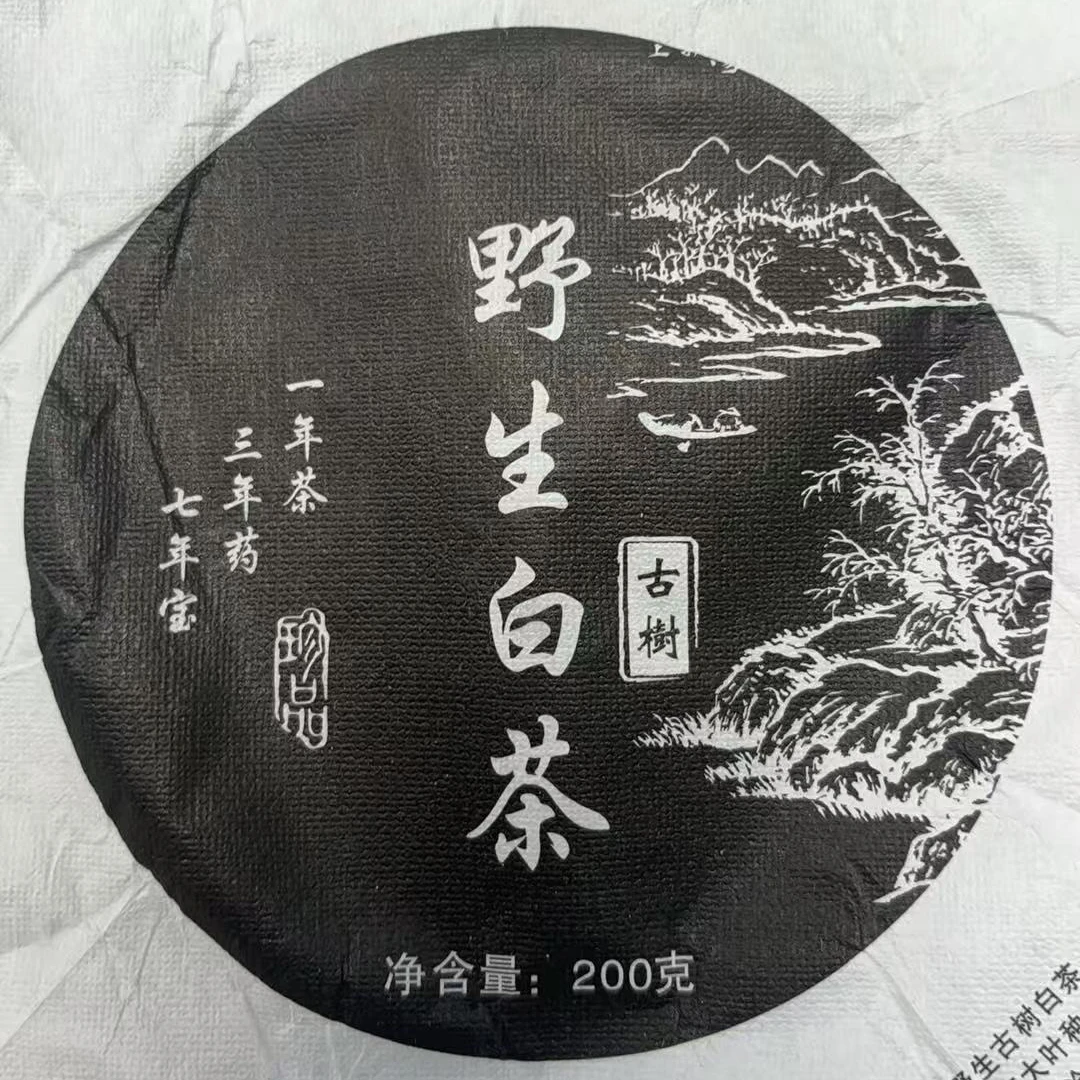 野生白茶
古樹
一年茶
三年药
七年宝
珍品
净含量：200克
生古树白茶
大叶种